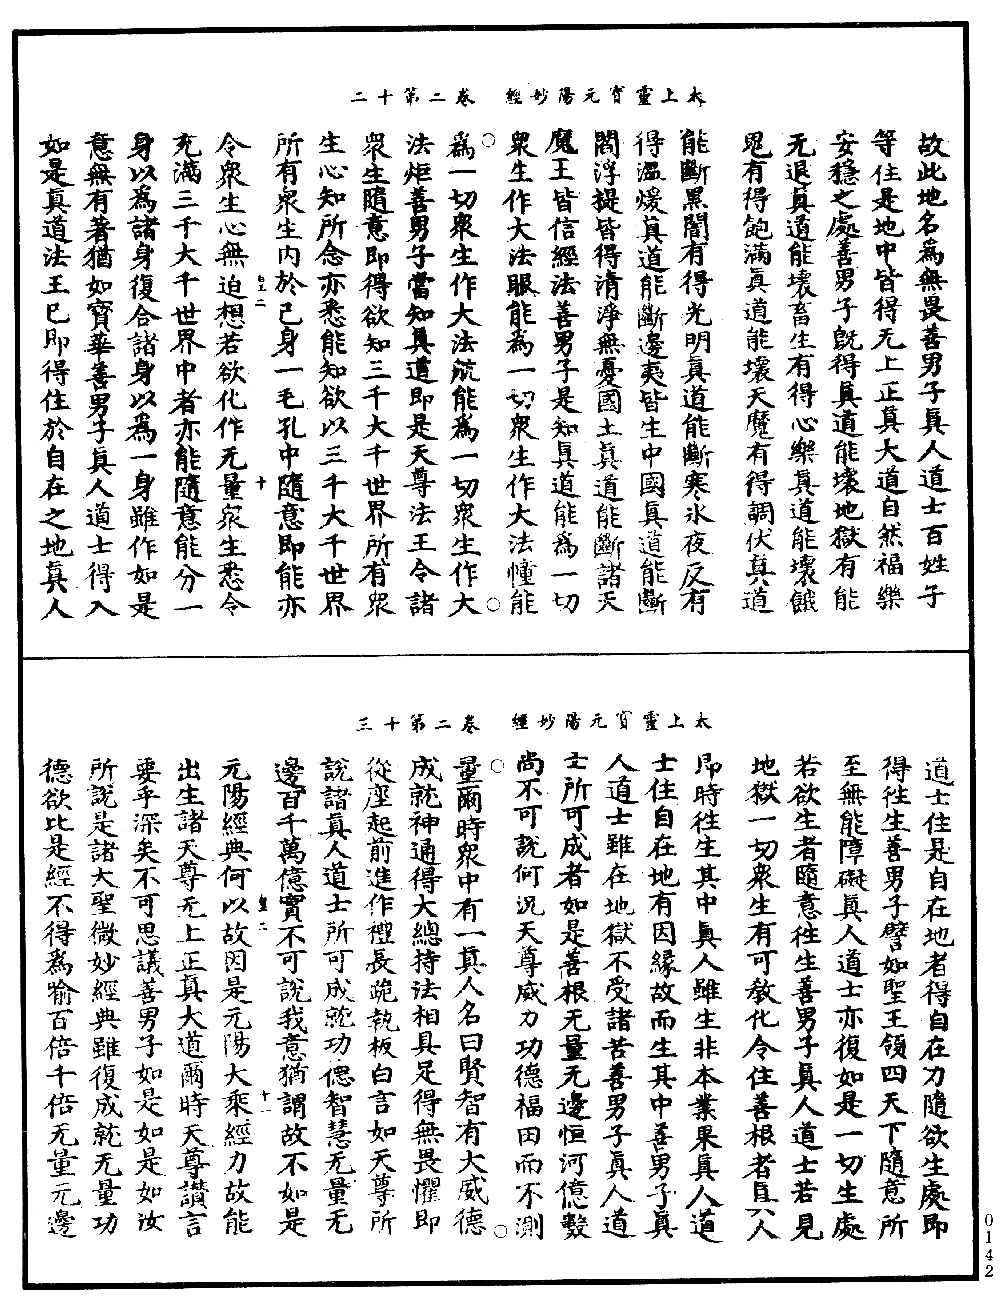 太上靈寶元陽妙經　卷二第十二
故此地名為無畏善男子真人道士百姓子
等住是地中皆得无上正真大道自然福樂
安穩之處善男子既得真道能壞地獄有能
无退真道能壞畜生有得心樂真道能壞餓
鬼有得飽滿真道能壞天魔有得調伏真道
能斷黑闇有得光明真道能斷寒氷夜反有
得溫煖真道能斷邊夷皆生中國真道能斷
閻浮提皆得清淨無憂國土真道能斷諸天
魔王皆信經法善男子是知真道能為一切
眾生作大法眼能為一切眾生作大法幢能
為一切眾生作大法旒能為一切眾生作大
法炬善男子當知真道即是天尊法王令諸
眾生隨意即得欲知三千大千世界所有眾
生心知所念亦悉能知欲以三千大千世界
所有眾生內於己身一毛孔中隨意即能亦
十
令眾生心無迫想若欲化作无量眾生悉令
充滿三千大千世界中者亦能隨意能分一
身以為諸身復合諸身以為一身雖作如是
意無有著猶如寶華善男子真人道士得入
如是真道法王已即得住於自在之地真人
太上靈寶元陽妙經　卷二第十三
道士住是自在地者得自在力隨欲生處即
得往生善男子譬如聖王領四天下隨意所
至無能障礙真人道士亦復如是一切生處
若欲生者隨意往生善男子真人道士若見
地獄一切眾生有可教化令住善根者真人
即時往生其中真人雖生非本業果真人道
士住自在地有因緣故而生其中善男子真
人道士雖在地獄不受諸苦善男子真人道
士所可成者如是善根无量无邊恒河億數
尚不可說何況天尊威力功德福田而不測
量爾時眾中有一真人名曰賢智有大威德
成就神通得大總持法相具足得無畏懼即
從座起前進作禮長跪執板白言如天尊所
說諸真人道士所可成就功德智慧无量无
邊百千萬億實不可說我意猶謂故不如是
十一
元陽經典何以故因是元陽大乘經力故能
出生諸天尊无上正真大道爾時天尊讚言
要乎深矣不可思議善男子如是如是如汝
所說是諸大聖微妙經典雖復成就无量功
德欲比是經不得為喻百倍千倍无量元邊
0142